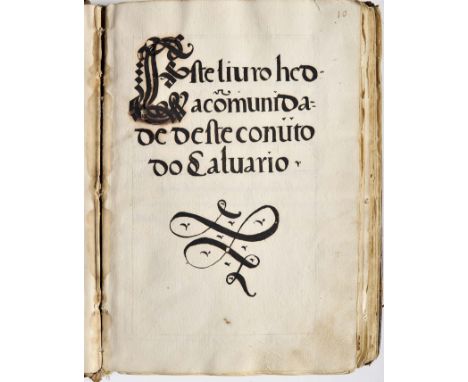 10
Este liuro he d·
a cõmunida=
de deste conuẽto
do Caluario ·